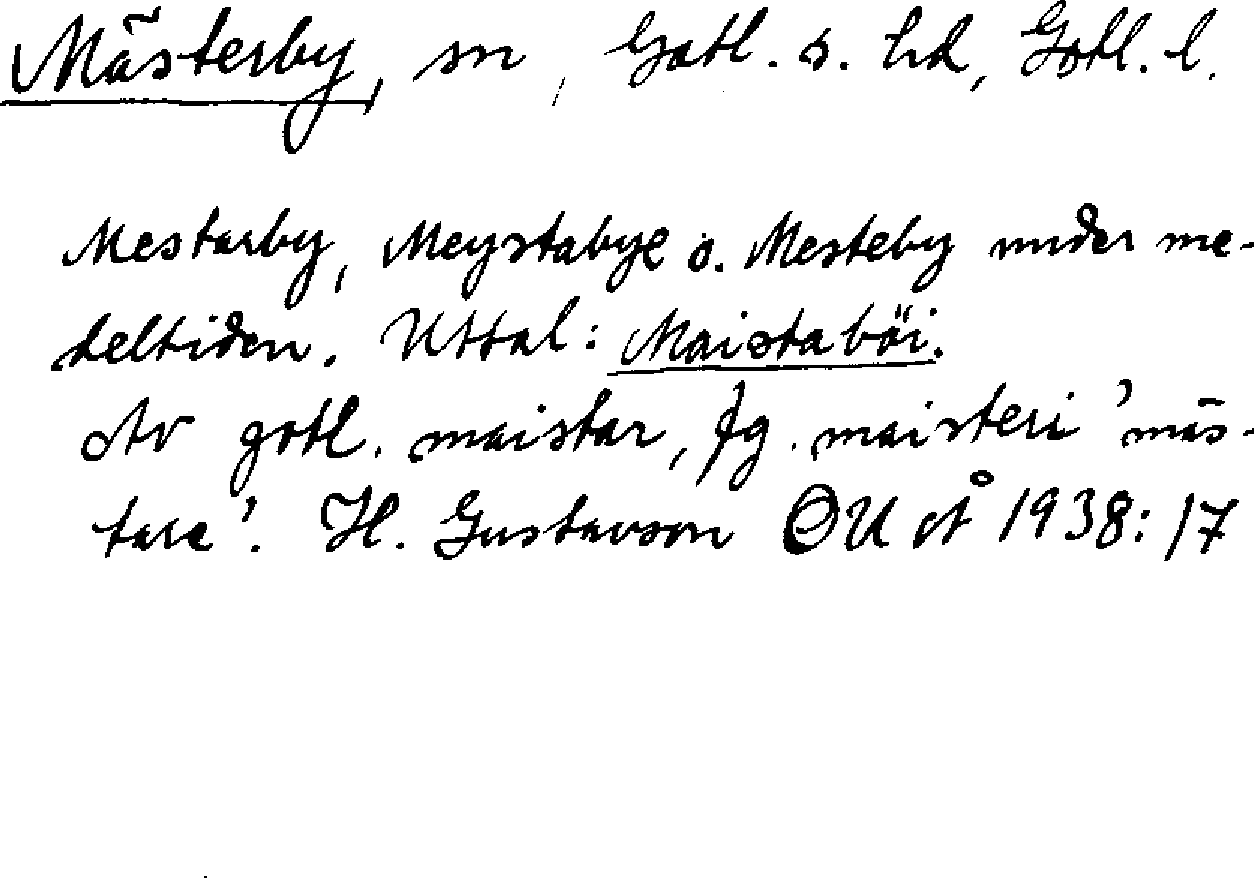 Mästerby, sn, Gotl. s. hd, Gotl. l.
Mestarby, Meystabye o. Mesteby under me-
deltiden. Uttal: Maistaböi.
Av gotl. maistar, fg. maisteri 'mäs-
tare'. H. Gustavson OUÅ 1938:17